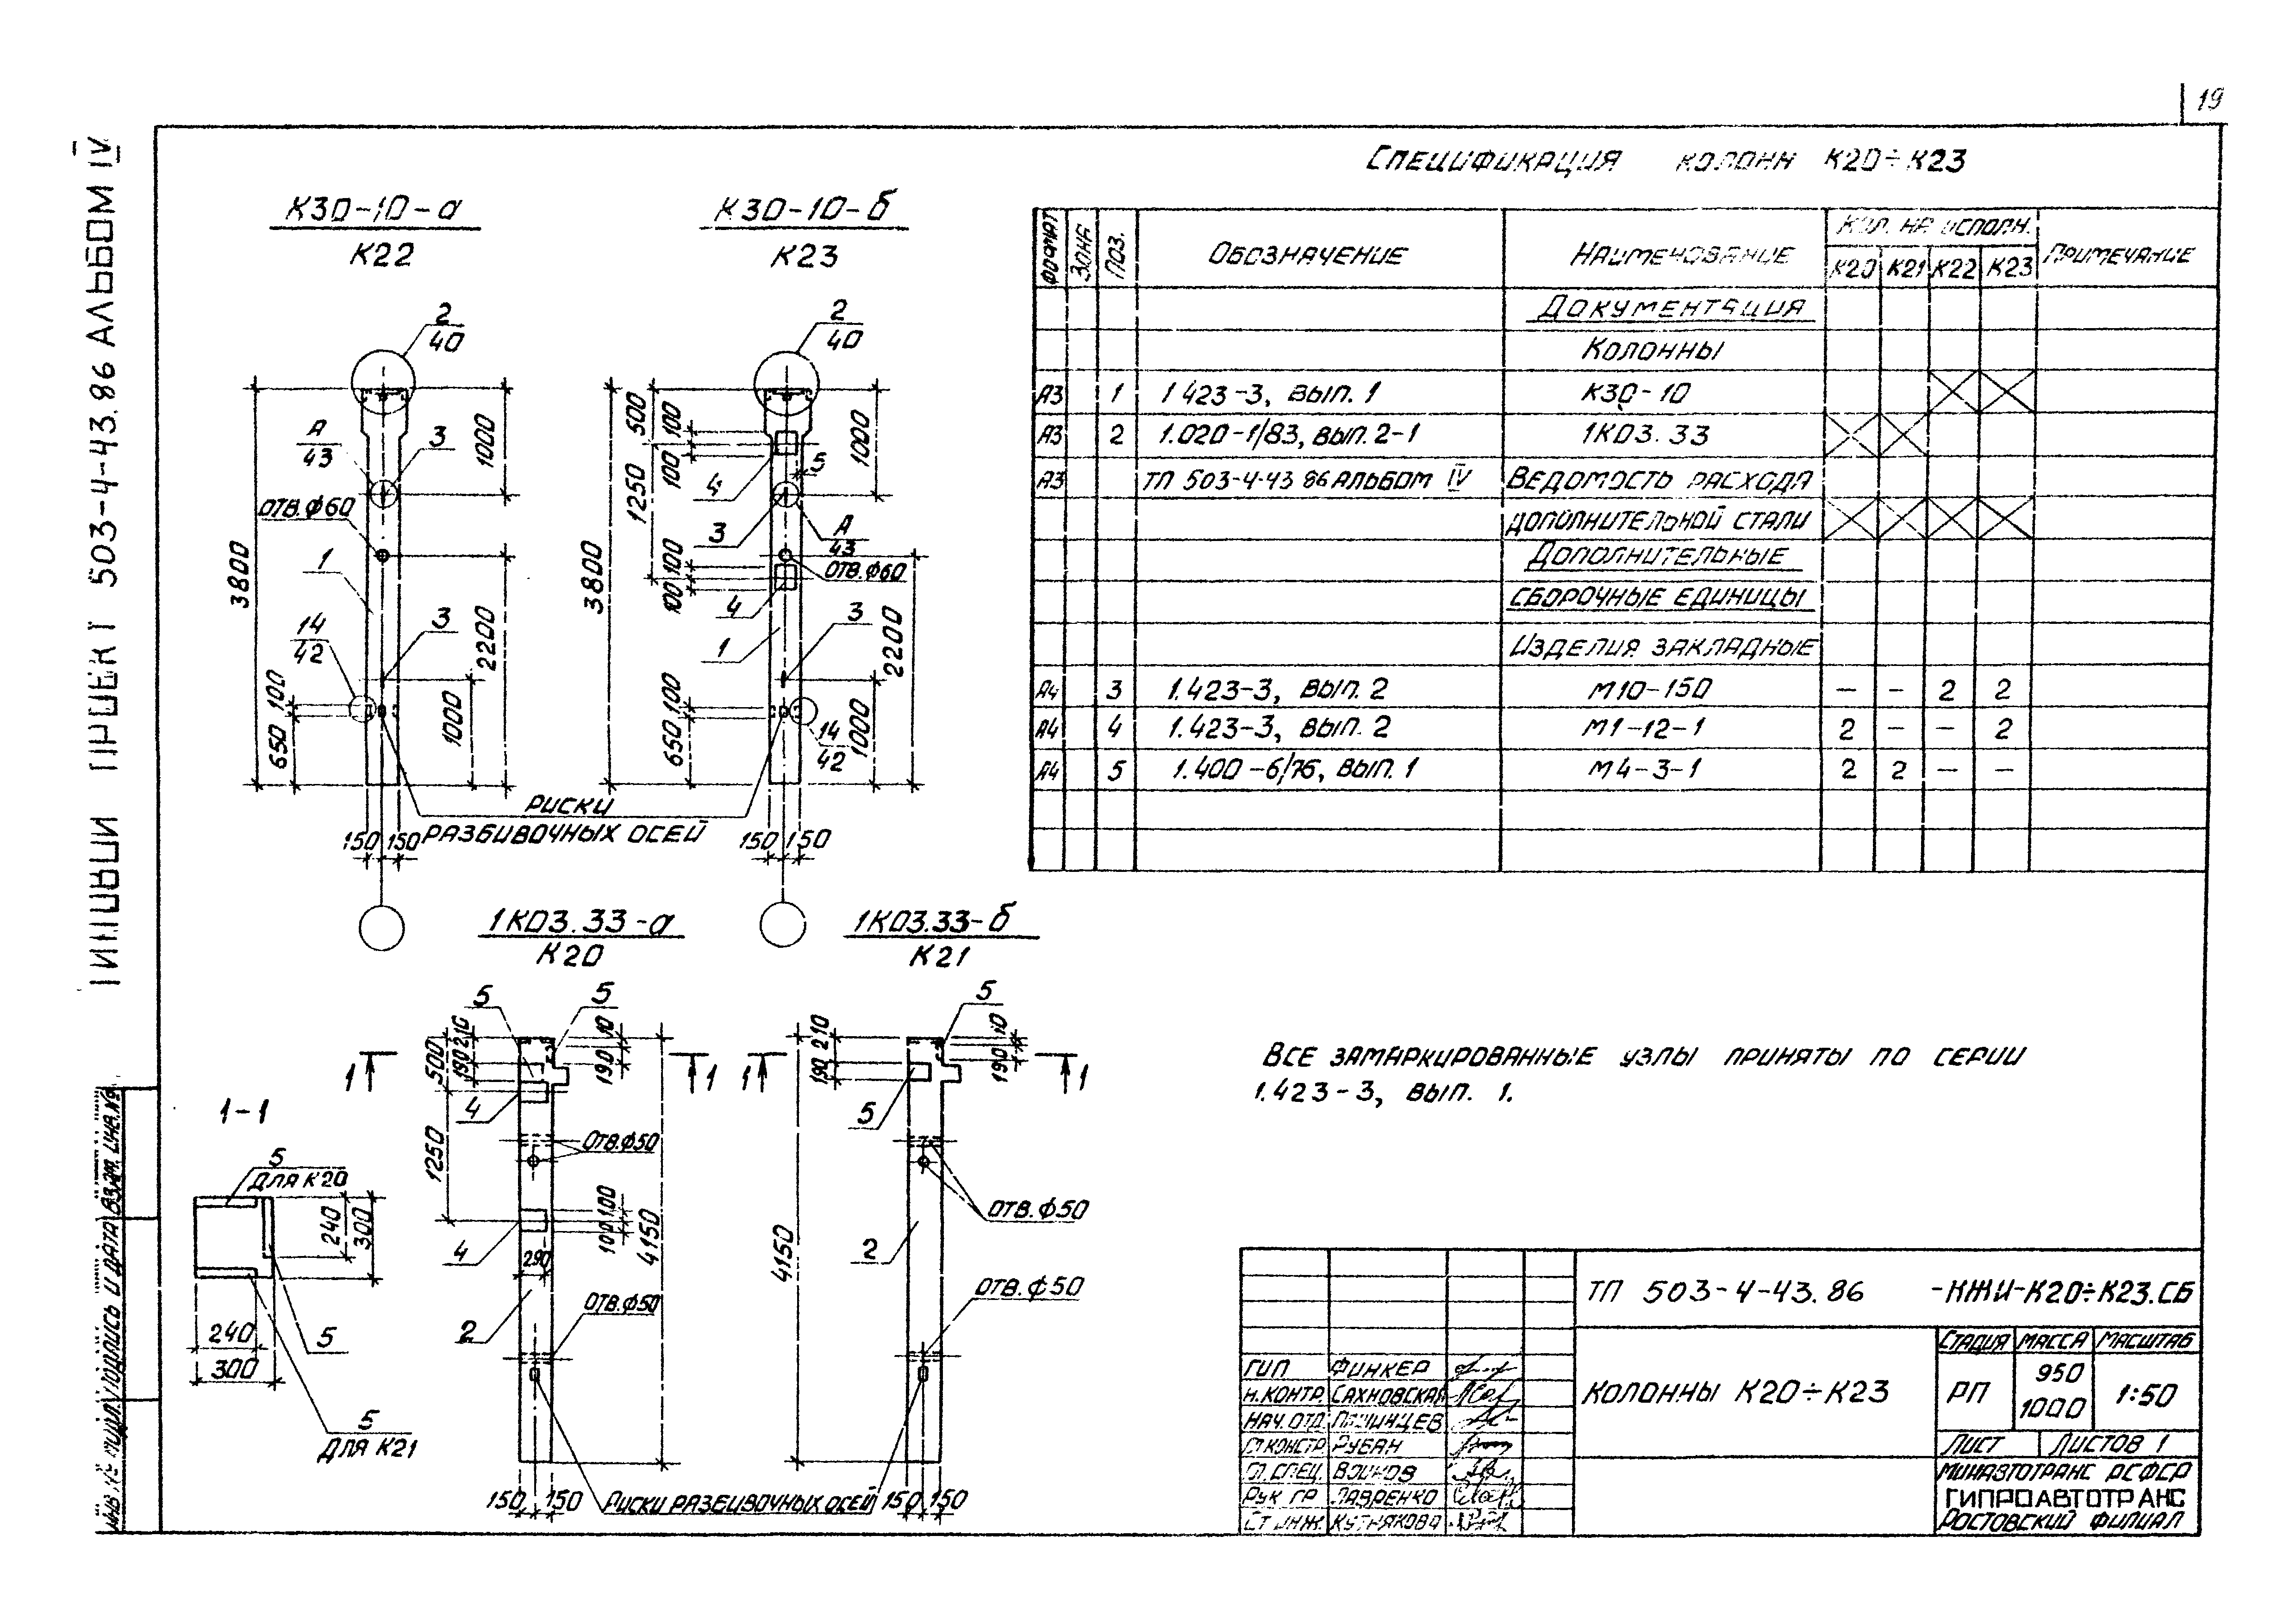 19
ТИПОВОЙ ПРОЕКТ 503-4-43.86 АЛЬБОМ IV
К30-10-а
К22
К30-10-б
К23
2
40
А
43
3
ОТВ.Ф60
1
3
14
42
3800
1000
2200
1000
100
650
150 150
2
40
500
100
100
1250
4
5
3
А
43
ОТВ.Ф60
100
100
4
3
1
3800
1000
2200
1000
100
650
14
42
150 150
РИСКИ
РАЗБИВОЧНЫХ ОСЕЙ
СПЕЦИФИКАЦИЯ КОЛОНН К20÷К23
ФОРМАТ ЗОНА ПОЗ. ОБОЗНАЧЕНИЕ НАИМЕНОВАНИЕ КОЛ. НА ИСПОЛН. ПРИМЕЧАНИЕ
К20 К21 К22 К23
ДОКУМЕНТАЦИЯ
КОЛОННЫ
А3 1 1 423-3, ВЫП. 1 К30-10
А3 2 1.020-1/83, ВЫП. 2-1 1К03.33
А3 ТП 503-4-43 86 АЛЬБОМ IV ВЕДОМОСТЬ РАСХОДА
ДОПОЛНИТЕЛЬНОЙ СТАЛИ
ДОПОЛНИТЕЛЬНЫЕ
СБОРОЧНЫЕ ЕДИНИЦЫ
ИЗДЕЛИЯ ЗАКЛАДНЫЕ
А4 3 1.423-3, ВЫП. 2 М10-150 — – 2 2
А4 4 1.423-3, ВЫП. 2 М1-12-1 2 – – 2
А4 5 1.400-6/76, ВЫП. 1 М4-3-1 2 2 – –
1К03.33-а
К20
1К03.33-б
К21
5
5
210
190
500
1250
10
190
1 1
4
ОТВ.Ф50
100
100
4
290
4150
2
ОТВ.Ф50
150 150
РИСКИ РАЗБИВОЧНЫХ ОСЕЙ
5
210
190
10
190
1 1
5
ОТВ.Ф50
2
4150
ОТВ.Ф50
150 150
1-1
5
ДЛЯ К20
240
300
240
300
5
5
ДЛЯ К21
ВСЕ ЗАМАРКИРОВАННЫЕ УЗЛЫ ПРИНЯТЫ ПО СЕРИИ
1.423-3, ВЫП. 1.
ТП 503-4-43.86 -КЖИ-К20÷К23.СБ
КОЛОННЫ К20÷К23
СТАДИЯ МАССА МАСШТАБ
РП 950
1000 1:50
ЛИСТ ЛИСТОВ 1
МИНАВТОТРАНС РСФСР
ГИПРОАВТОТРАНС
РОСТОВСКИЙ ФИЛИАЛ
ГИП ФИНКЕР
Н.КОНТР. САХНОВСКАЯ
НАЧ.ОТД.
ГЛ.КОНСТР. РУБАН
ГЛ.СПЕЦ. ВОИНОВ
РУК ГР ЛАВРЕНКО
СТ ИНЖ. КУТНЯКОВА
ИНВ.№ ПОДЛ. ПОДПИСЬ И ДАТА ВЗАМ. ИНВ.№